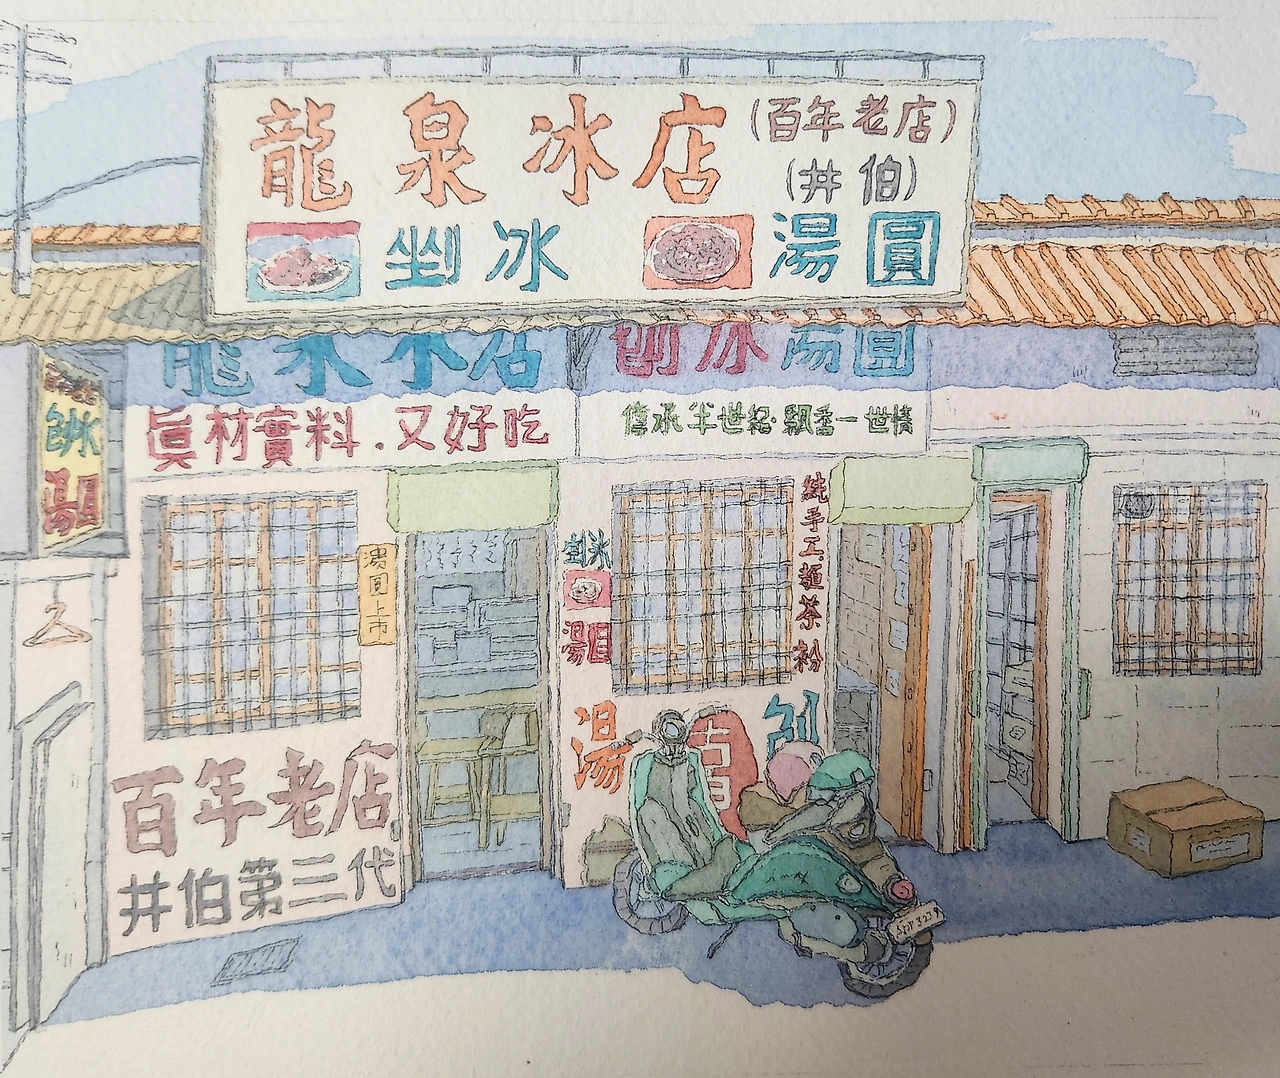 龍泉冰店
(百年老店)
(井伯)
剉冰 湯圓
龍泉冰店 刨冰湯圓
真材實料.又好吃
傳承半世紀·飄香一世情
刨冰
湯圓
湯圓上市
剉冰
湯圓
純手工麵茶粉
湯
刨
百年老店
井伯第三代